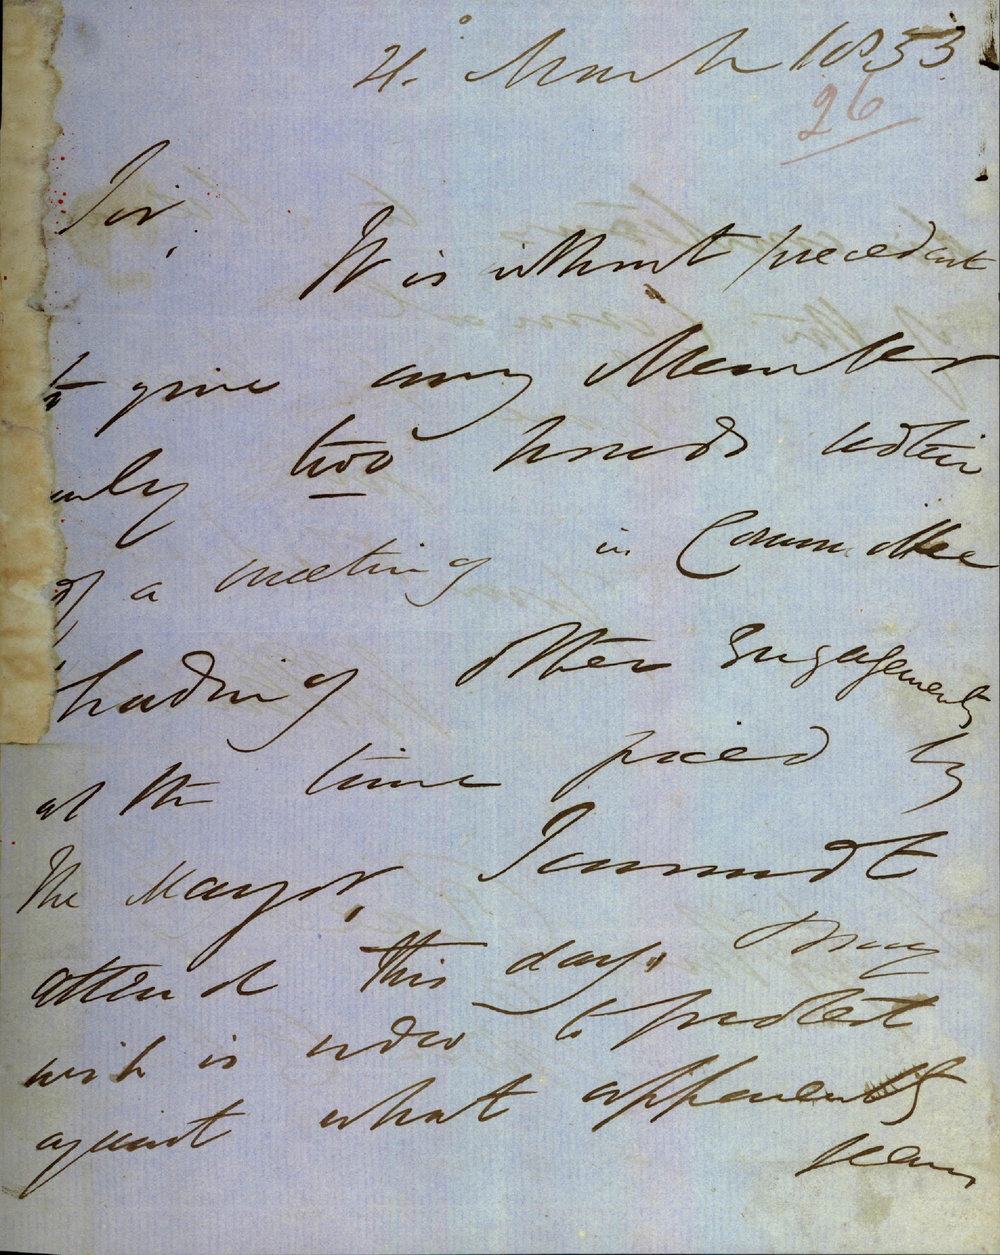 4. March 1853
26
Sir,
It is without precedent
to give any Member
only two hours notice
of a meeting in Committee
having other Engagements
at the time fixed by
the Mayor, I cannot
attend this day. My
wish is to protest
against what apparently